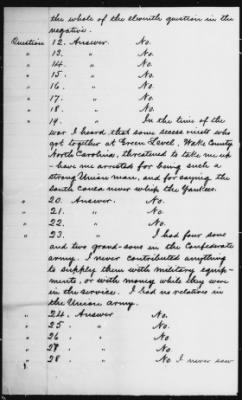 the whole of the eleventh question in the
negative.
Question 12. Answer. No.
" 13. " No.
" 14. " No.
" 15. " No.
" 16. " No.
" 17. " No.
" 18. " No.
" 19. " In the time of the
war I heard that some secess
got together at Green Level, Wake County
North Carolina, threatened to take me up
- have me arrested for being such a
strong Union man, and for saying the
south never whip the Yankees.
" 20. Answer. No.
" 21. " No
" 22. " No.
" 23. " I had four sons
and two grand-sons in the Confederate
army. I never contributed anything
to supply them with military equip-
ments, or with money while they were
in the service. I had no relatives in
the Union army.
" 24. Answer No.
" 25 " No.
" 26. " No.
" 27 " No.
" 28 " No I never saw